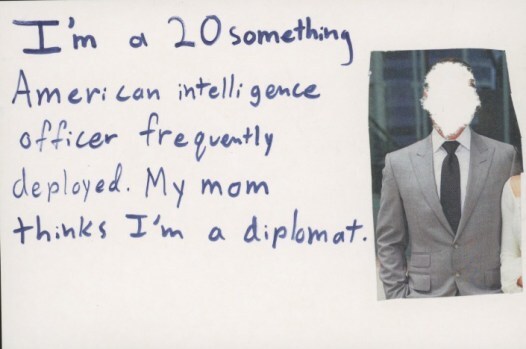 I'm a 20something
American intelligence
officer frequently
deployed. My mom
thinks I'm a diplomat.